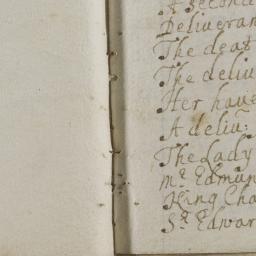 A Second
Deliveran
The deat
The deliv
Her have
A deliu:
The Lady
mr Edmun
King Cha
Sr Edwar